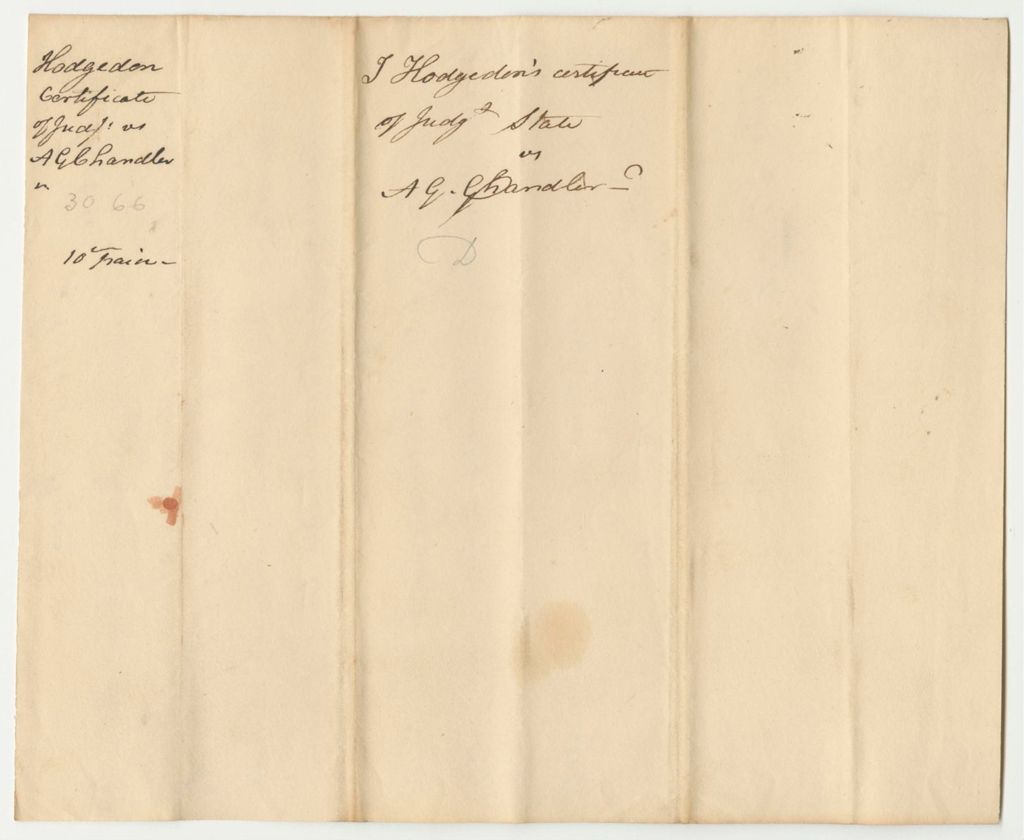 Hodgedon
Certificate
of Judgt. vs
A G Chandler
30 66
J Hodgedon's certificate
of Judgt State
vs
A G. Chandler
D